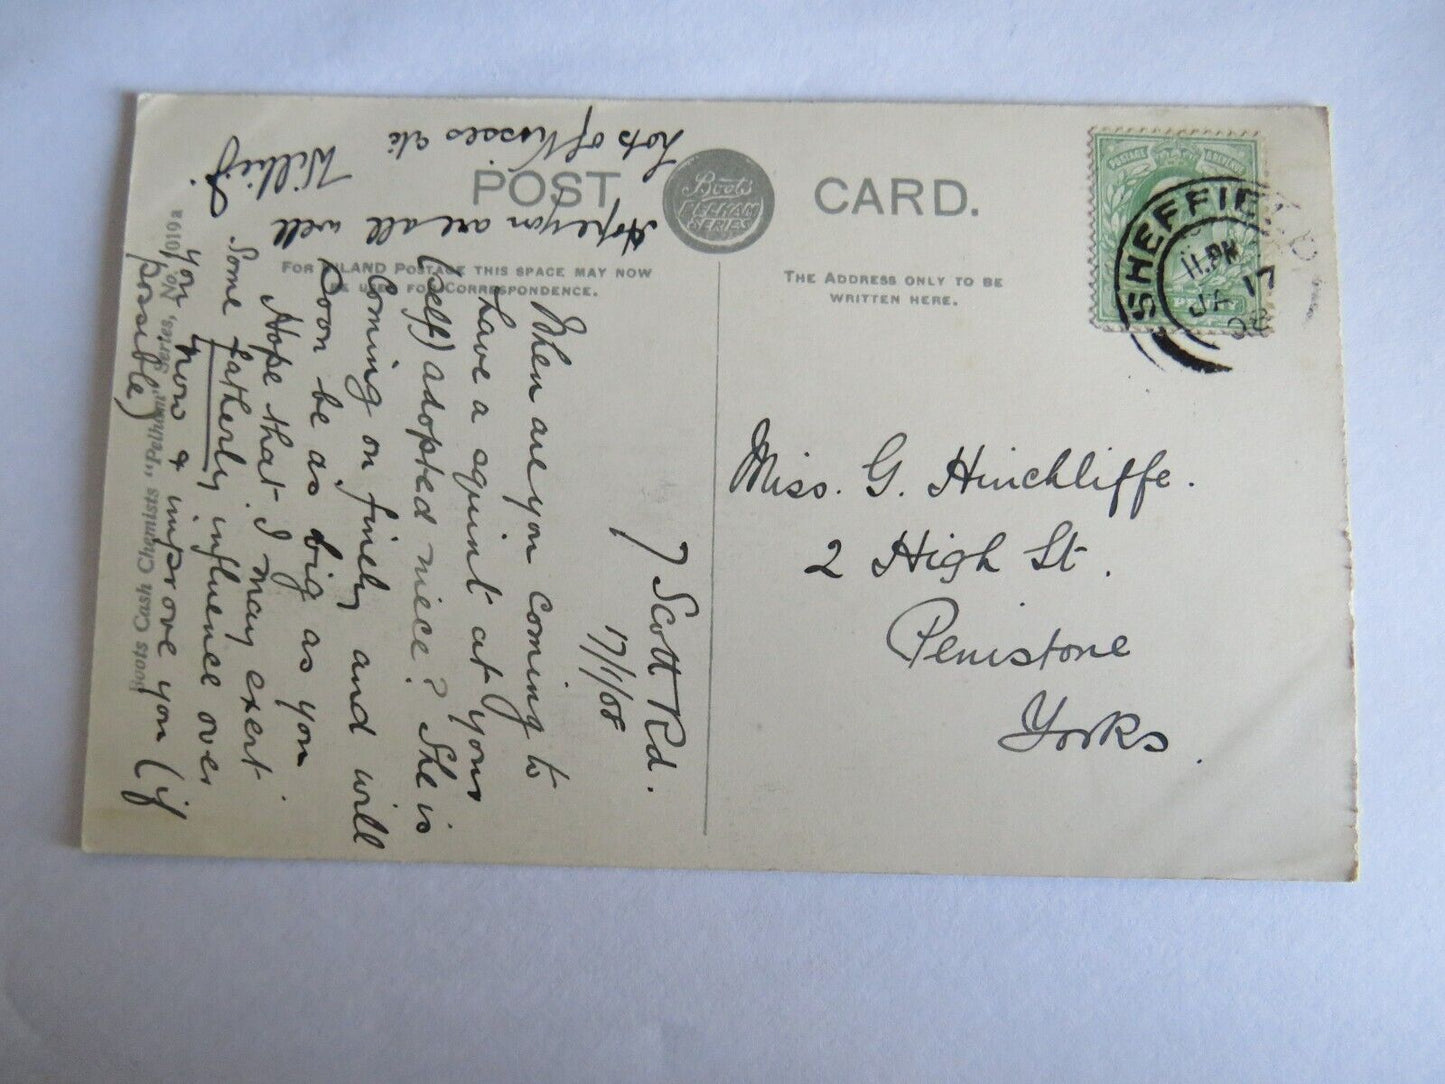 POST CARD.
Boots
PELHAM
SERIES
FOR INLAND POSTAGE THIS SPACE MAY NOW
BE USED FOR CORRESPONDENCE.
THE ADDRESS ONLY TO BE
WRITTEN HERE.
POSTAGE REVENUE
SHEFFIELD
11.PM
JA 17
08
Miss. G. Hinchliffe.
2 High St.
Penistone
Yorks.
7 Scott Rd.
17/1/08
When are you coming to
have a squint at your
(self) adopted niece? She is
coming on finely and will
soon be as big as you
Hope that I may exert
some fatherly influence over
you now & improve you (if
possible)
Hope you are all well
Lots of Kisses etc
Willie J.
Boots Cash Chemists "Pelham" Series, No. 1019a